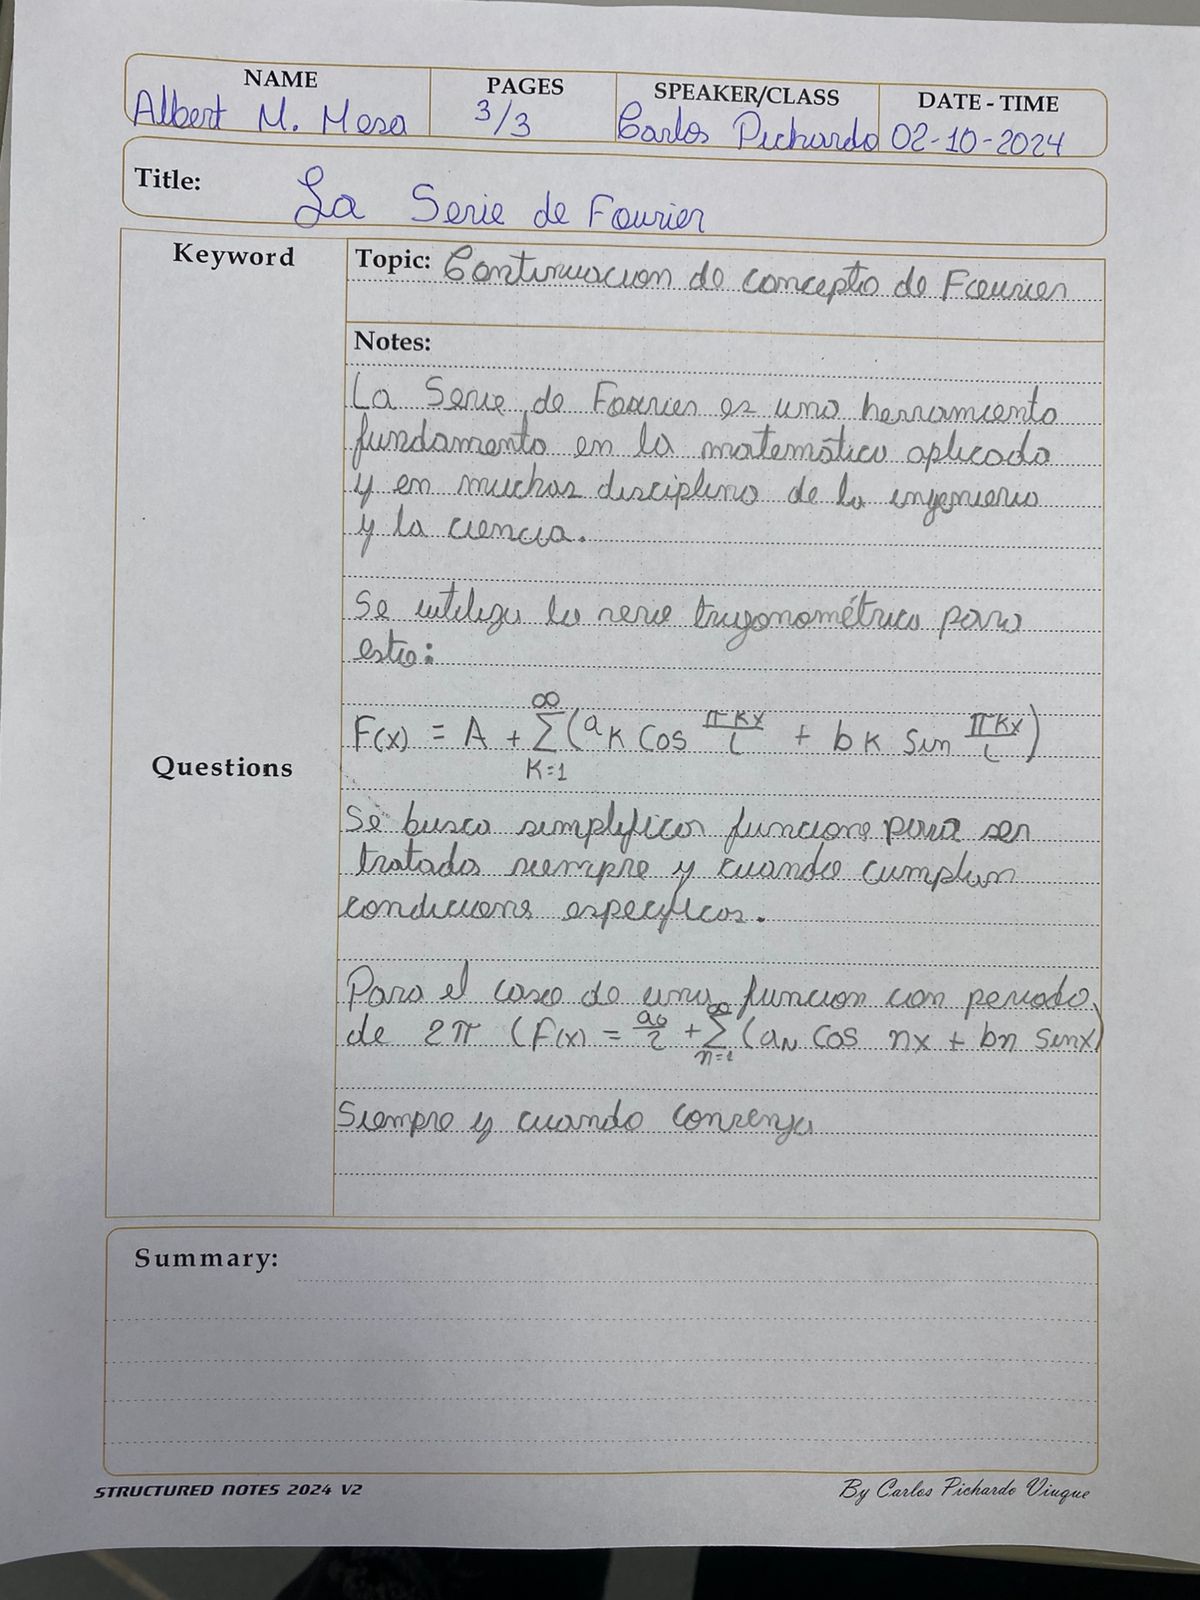 NAME PAGES SPEAKER/CLASS DATE - TIME
Albert M. Mesa 3/3 Carlos Pichardo 02-10-2024
Title: La Serie de Fourier
Keyword
Topic: Continuacion de concepto de Fourier
Notes:
La Serie de Fourier es una herramienta
fundamento en la matemática aplicada
y en muchas disciplina de la ingenieria
y la ciencia.
Se utiliza la serie trigonométrica para
esto:
F(x) = A + ∑_{K=1}^{∞} (a_K Cos \frac{πKx}{L} + b_K Sin \frac{πKx}{L})
Questions
Se busca simplificar funcione para ser
tratada siempre y cuando cumplan
condicions especificas.
Para el caso de una funcion con periodo
de 2π (F(x) = \frac{a_0}{2} + ∑_{n=1}^{∞} (a_N Cos nx + bn Sinx)
Siempre y cuando converja
Summary:
STRUCTURED NOTES 2024 V2
By Carlos Pichardo Viuque